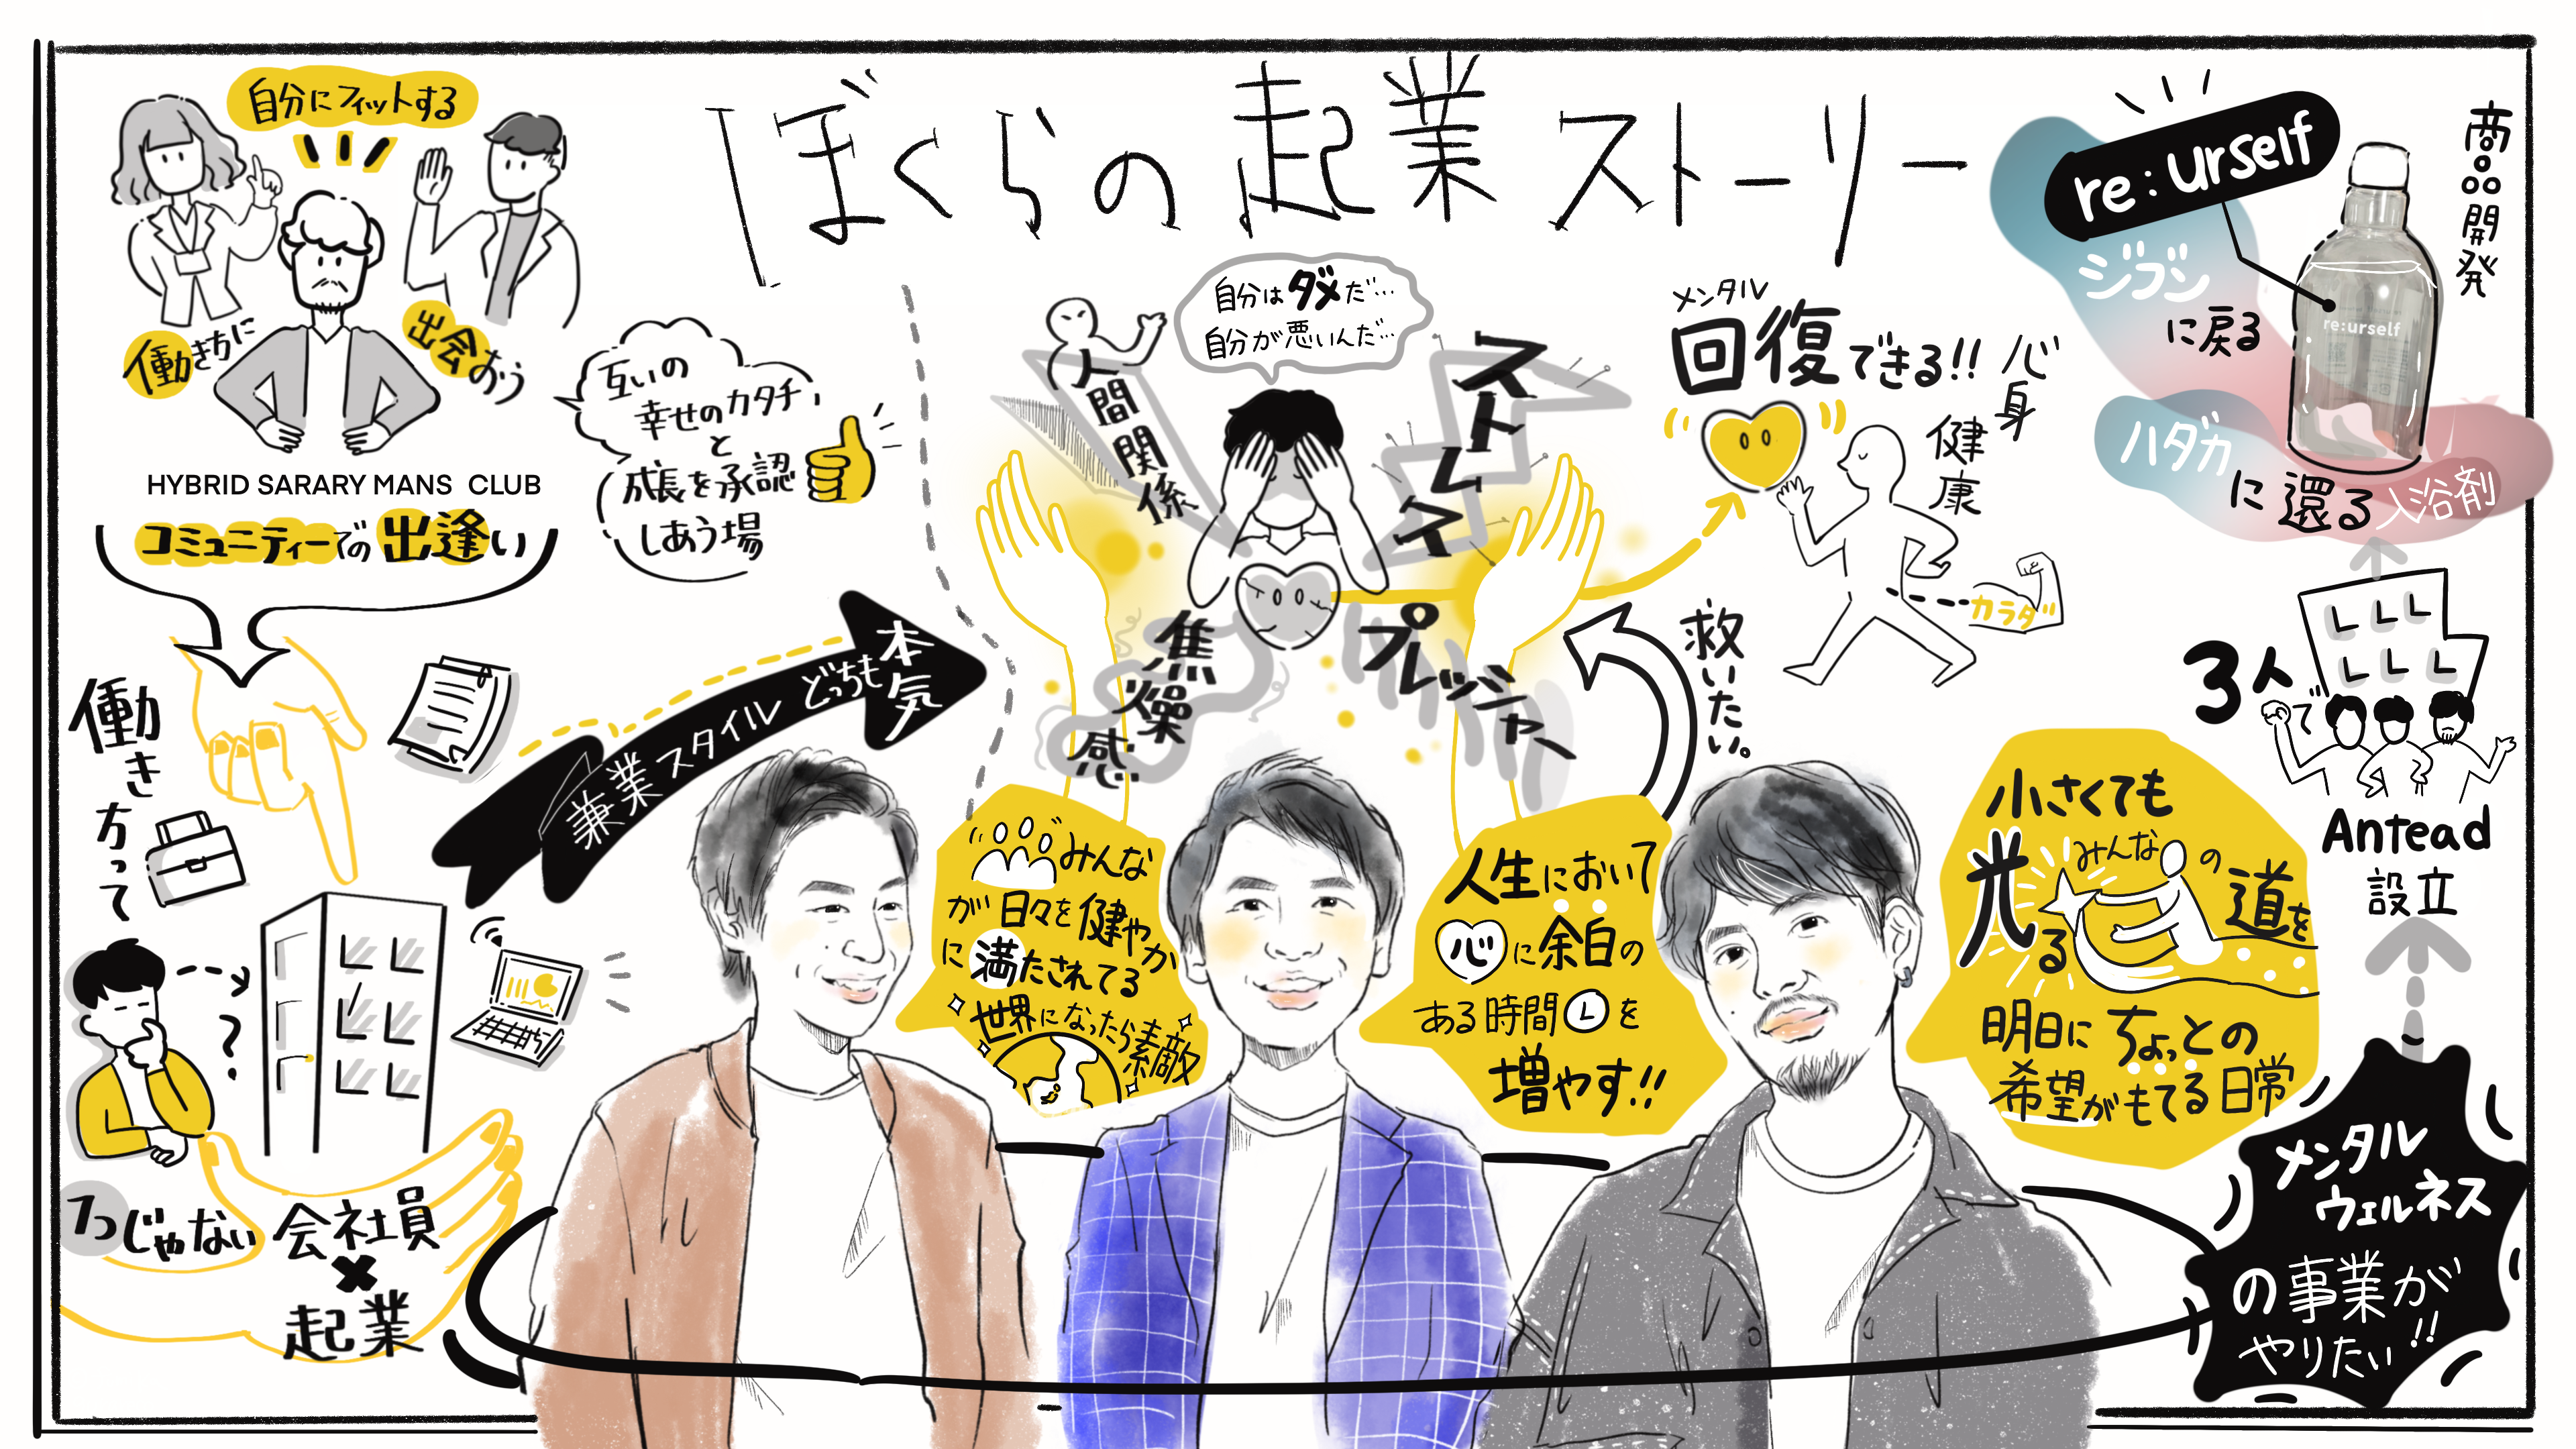 ぼくらの起業ストーリー
自分にフィットする
働き方に
出会おう
HYBRID SARARY MANS CLUB
コミュニティーでの出逢い
互いの
幸せのカタチ
と
成長を承認
しあう場
働き方って
?
1つじゃない
会社員
×
起業
兼業スタイル どっちも本気
人間関係
自分はダメだ…
自分が悪いんだ…
ストレス
焦燥感
プレッシャー
救いたい。
メンタル
回復できる!!
心身
健康
カラダ
みんな
が日々を健やか
に満たされてる
世界になったら素敵
人生において
心に余白の
ある時間を
増やす!!
小さくても
光る
みんなの
道を
明日にちょっとの
希望がもてる日常
メンタル
ウェルネス
の事業が
やりたい!!
3人で
Antead
設立
商品開発
re:urself
ジブン
に戻る
re:urself
ハダカ
に還る入浴剤